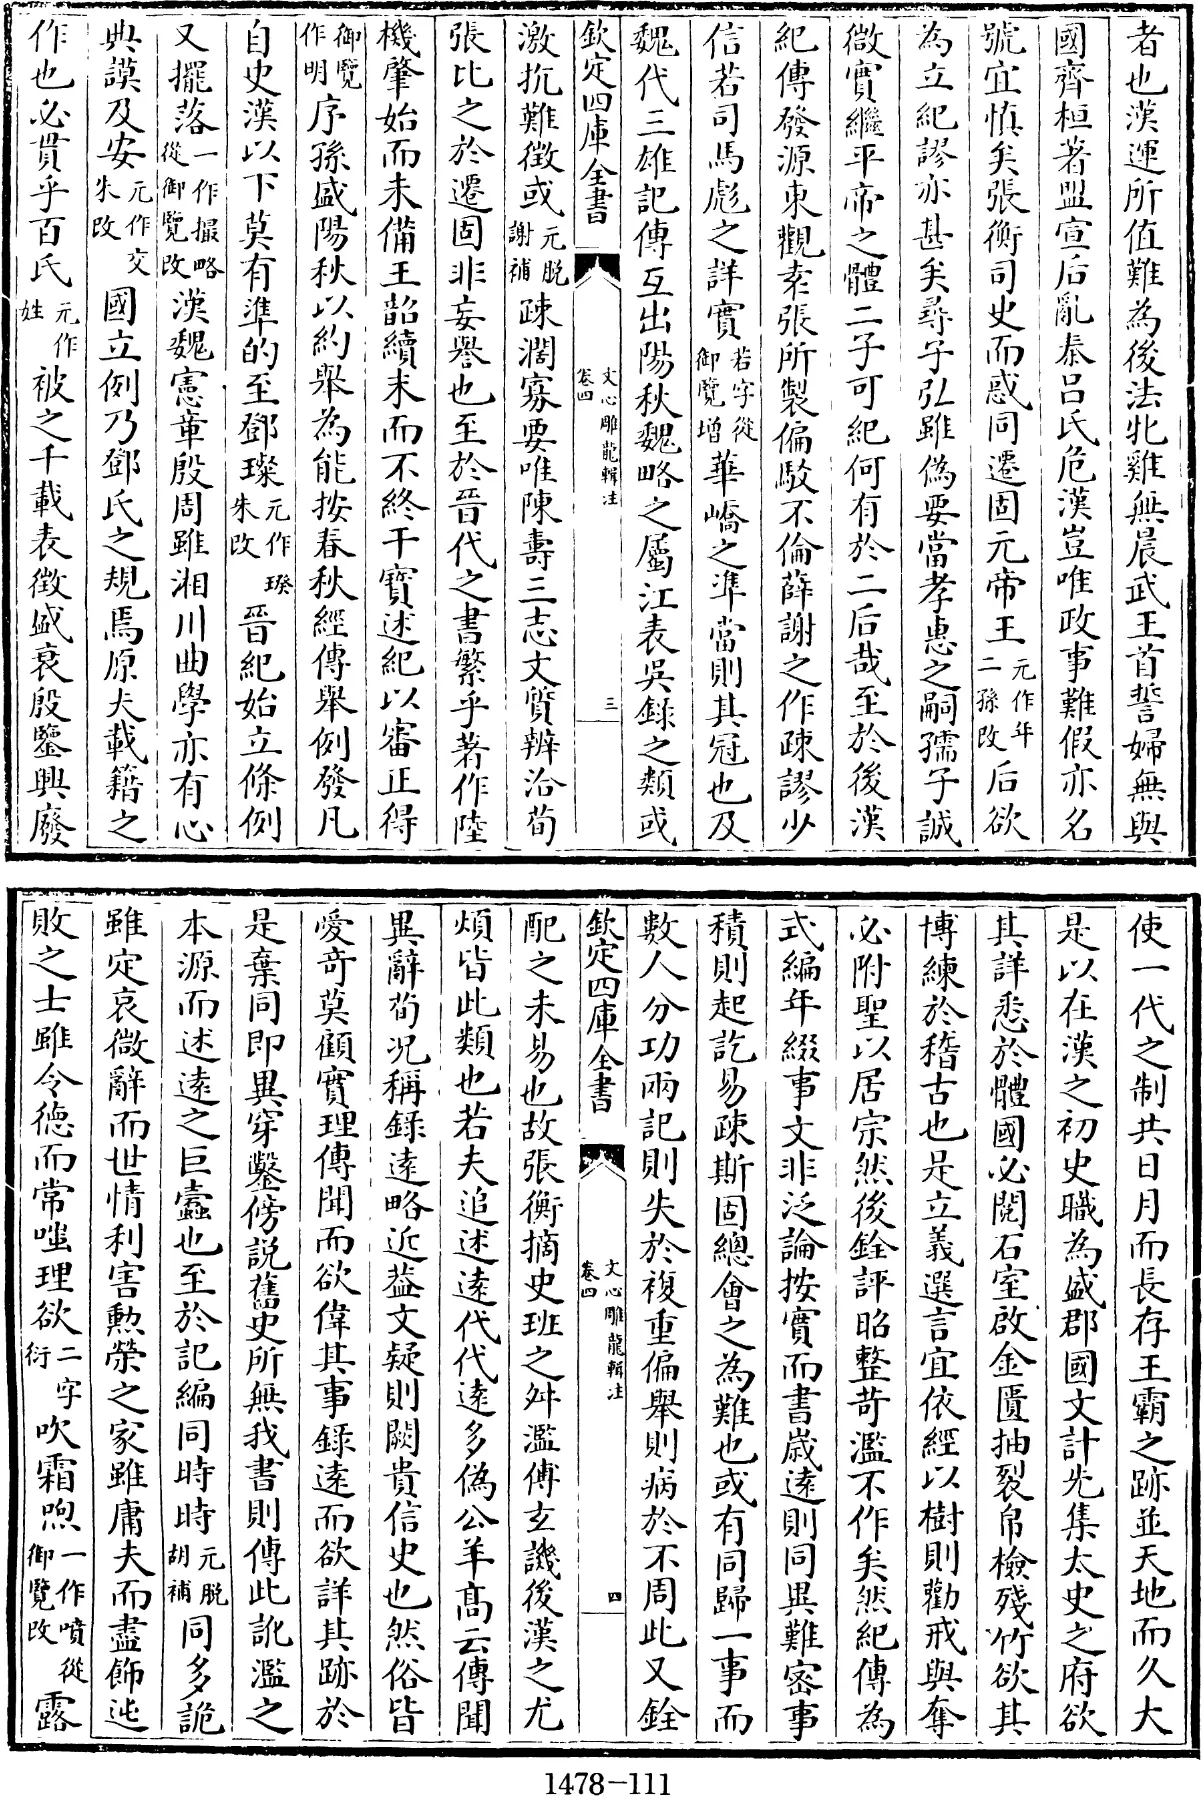 者也漢運所值難為後法牝雞無晨武王首誓婦無與
國齊桓著盟宣后亂秦呂氏危漢豈唯政事難假亦名
號宜慎矣張衡司史而惑同遷固元帝王元作年二孫改后欲
為立紀謬亦甚矣尋子弘雖偽要當孝惠之嗣孺子誠
微實繼平帝之體二子可紀何有於二后哉至於後漢
紀傳發源東觀袁張所製偏駁不倫薛謝之作疎謬少
信若司馬彪之詳實若字從御覽增華嶠之準當則其冠也及
魏代三雄記傳互出陽秋魏略之屬江表吳錄之類或
欽定四庫全書
文心雕龍輯注
卷四
三
激抗難徵或元脫謝補疎濶寡要唯陳壽三志文質辨洽荀
張比之於遷固非妄譽也至於晉代之書繁乎著作陸
機肇始而未備王韶續末而不終干寶述紀以審正得
御覽作明序孫盛陽秋以約舉為能按春秋經傳舉例發凡
自史漢以下莫有準的至鄧璨元作璨朱改晉紀始立條例
又擺落一作撮略從御覽改漢魏憲章殷周雖湘川曲學亦有心
典謨及安元作交朱改國立例乃鄧氏之規焉原夫載籍之
作也必貫乎百氏元作姓被之千載表徵盛衰殷鑒興廢
使一代之制共日月而長存王霸之跡並天地而久大
是以在漢之初史職為盛郡國文計先集太史之府欲
其詳悉於體國必閱石室啟金匱抽裂帛檢殘竹欲其
博練於稽古也是立義選言宜依經以樹則勸戒與奪
必附聖以居宗然後銓評昭整苛濫不作矣然紀傳為
式編年綴事文非泛論按實而書歲遠則同異難密事
積則起訖易疎斯固總會之為難也或有同歸一事而
數人分功兩記則失於複重偏舉則病於不周此又銓
欽定四庫全書
文心雕龍輯注
卷四
四
配之未易也故張衡摘史班之舛濫傅玄譏後漢之尤
煩皆此類也若夫追述遠代代遠多偽公羊高云傳聞
異辭荀況稱錄遠略近葢文疑則闕貴信史也然俗皆
愛奇莫顧實理傳聞而欲偉其事錄遠而欲詳其跡於
是棄同即異穿鑿傍説舊史所無我書則傳此訛濫之
本源而述遠之巨蠹也至於記編同時時元脫胡補同多詭
雖定哀微辭而世情利害勲榮之家雖庸夫而盡飾迍
敗之士雖令德而常嗤理欲二字衍吹霜喣一作噴從御覽改露
1478-111